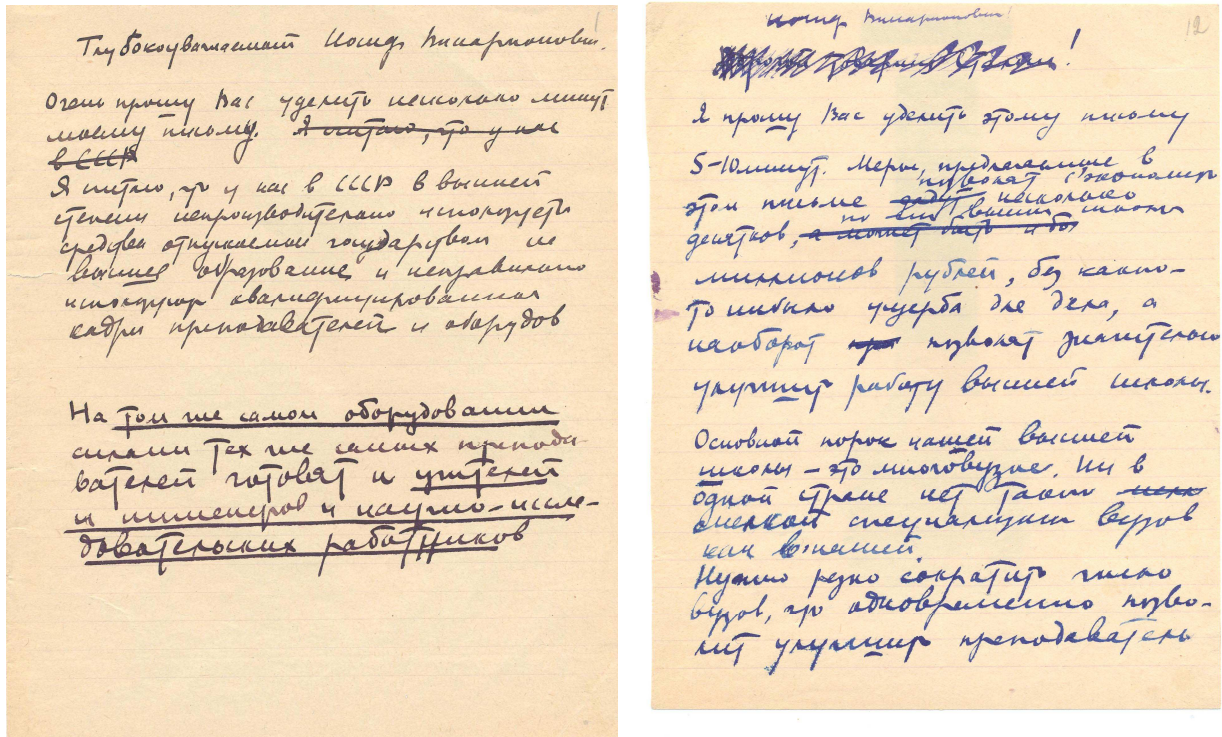 1
Глубокоуважаемый Иосиф Виссарионович.
Очень прошу Вас уделить несколько минут
моему письму. Я считаю, что у нас
в СССР
Я считаю, что у нас в СССР в высшей
степени непроизводительно используются
средства отпускаемые государством на
высшее образование и неправильно
используются квалифицированные
кадры преподавателей и оборудов
На том же самом оборудовании
силами тех же самых препода-
вателей готовят и учителей
и инженеров и научно-иссле-
довательских работников
12
Иосиф Виссарионович
!
Я прошу Вас уделить этому письму
5-10 минут. Меры, предлагаемые в
позволят сэкономить
этом письме несколько
по
десятков, а может быть и
миллионов рублей, без какого-
то нибудь ущерба для дела, а
наоборот позволят значительно
улучшить работу высшей школы.
Основной порок нашей высшей
школы – это многовузие. Ни в
одной стране нет такой
мелкой специализации вузов
как в нашей.
Нужно резко сократить число
вузов, что одновременно позво-
лит улучшить преподаватель